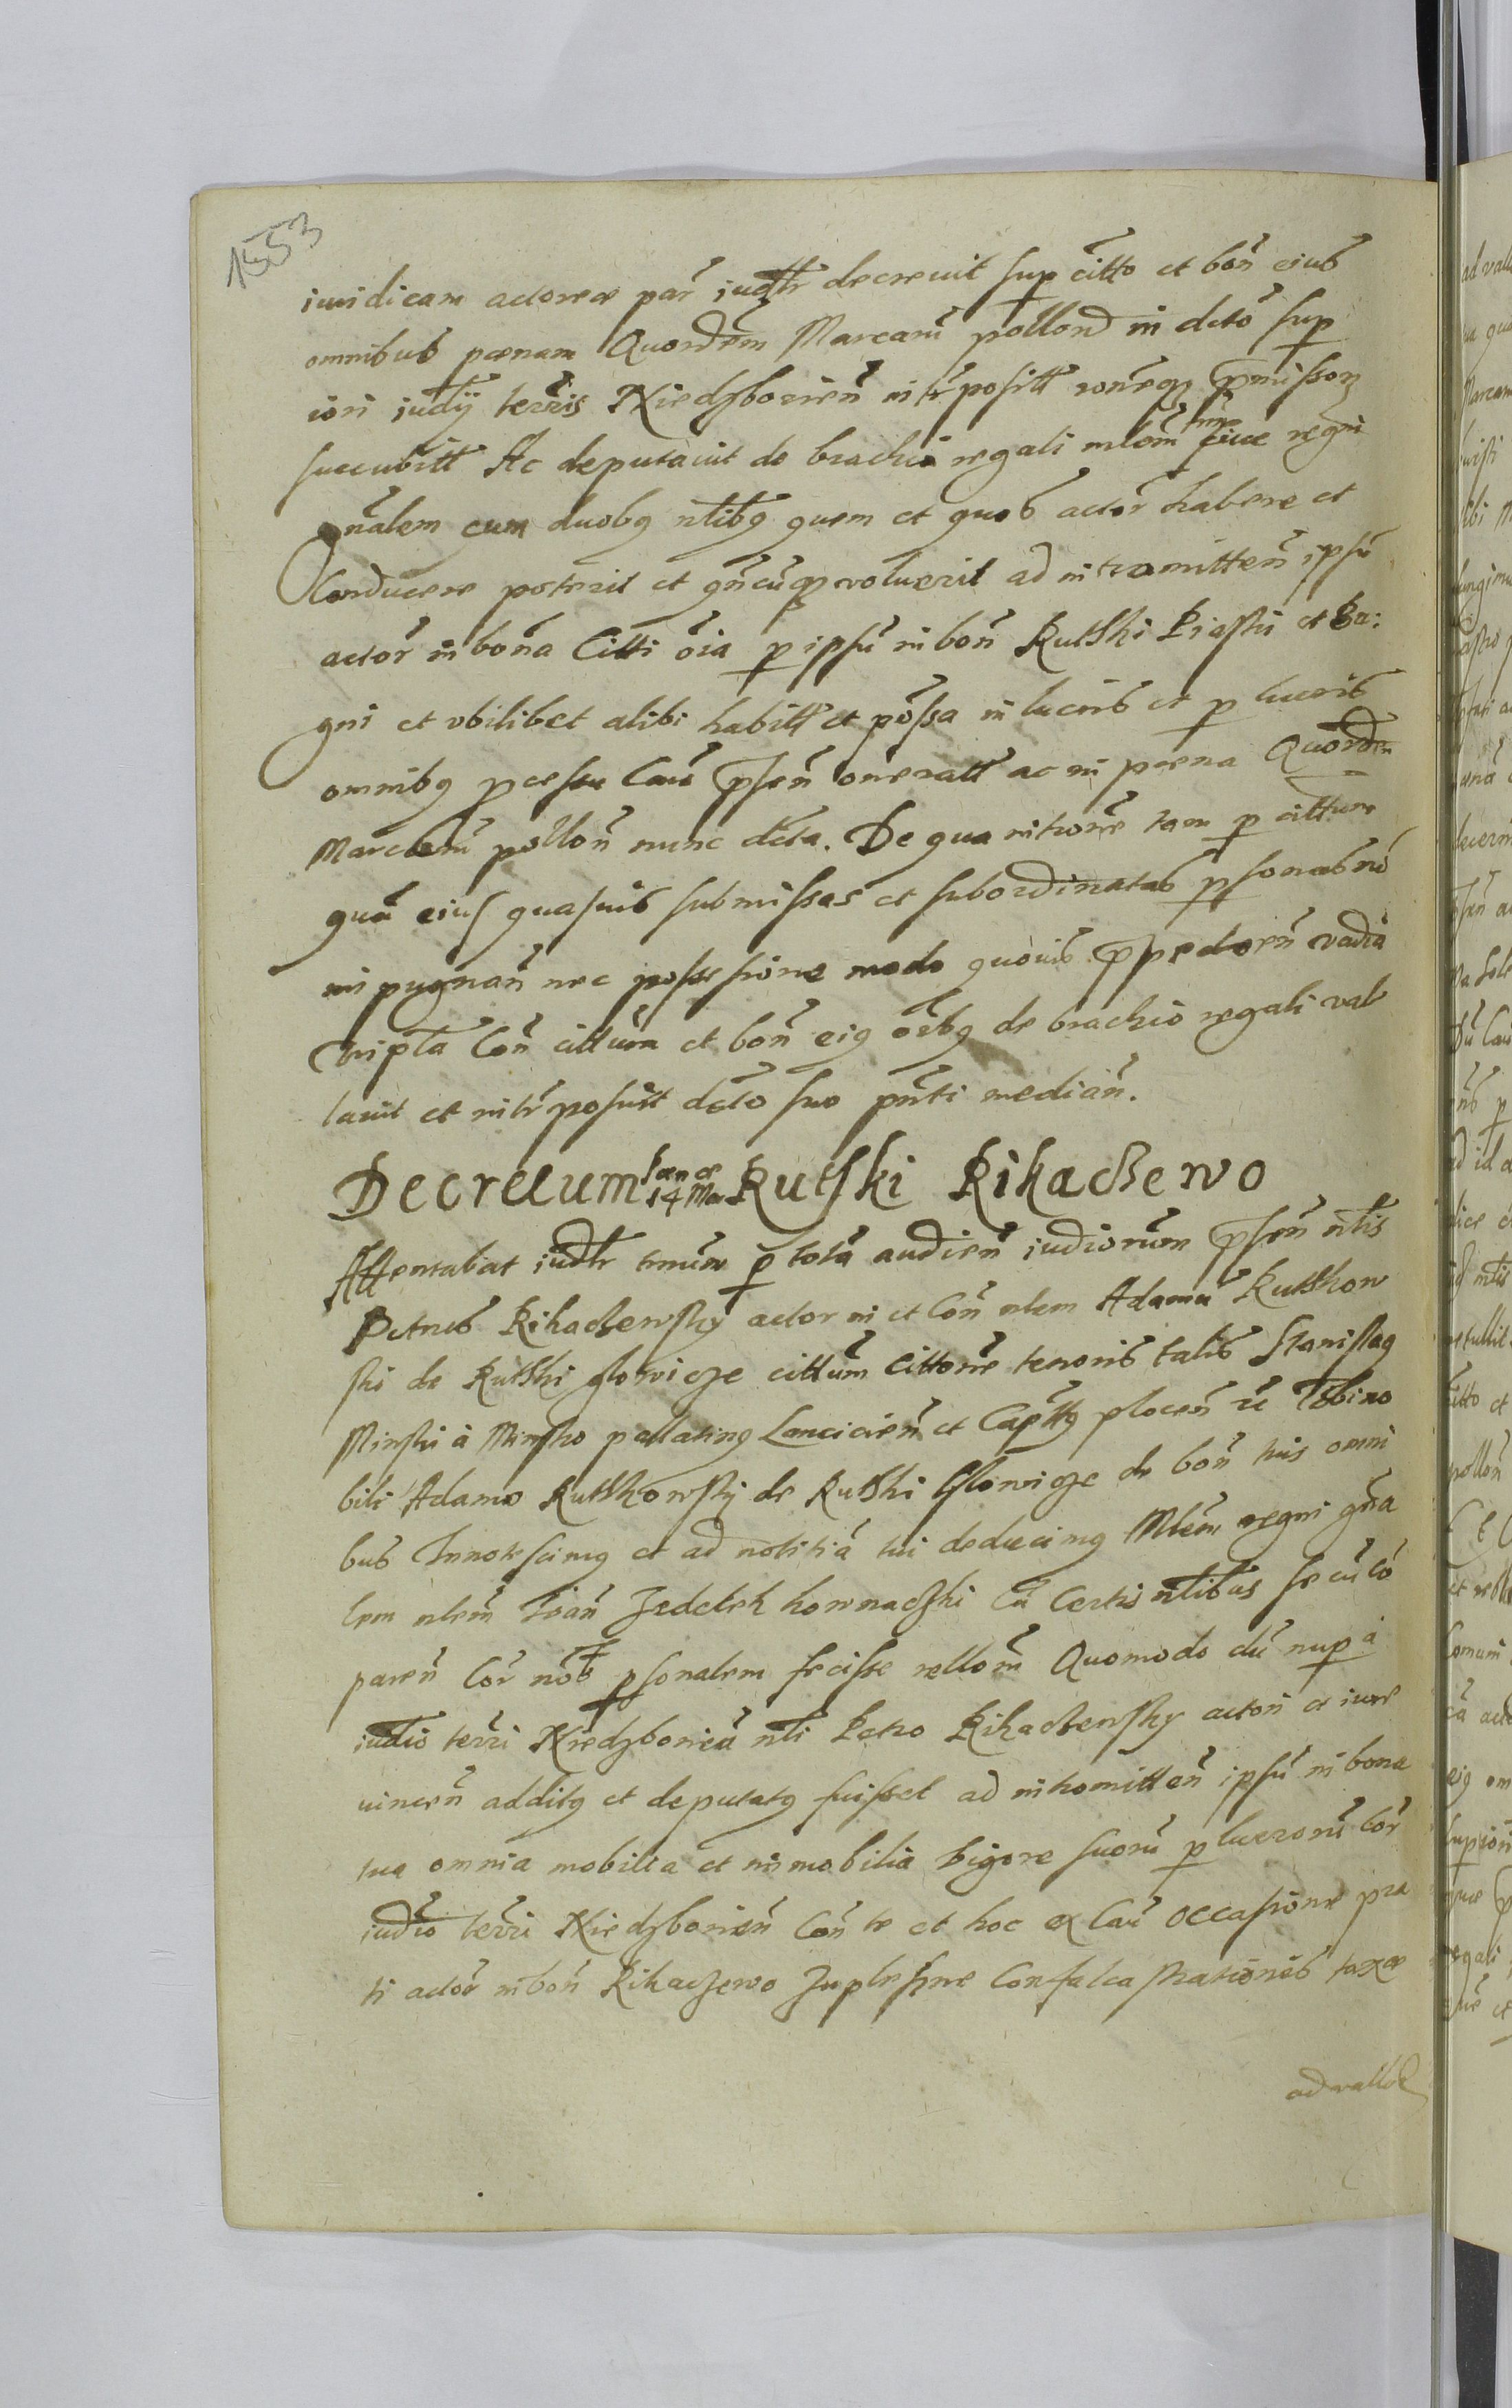 1553
iuridicam actoreæ par̃ iudtr decreuit sup citto et bon̄ eius
omnibus pœnam Quordem Marcaru̅ pollond in dcto̅ sup
iori iudÿ terr̃is Niedzborien̄ intr̃posill romeqz pmissorz
succubitt Ac deputauit de brachio regali mlom siue regni
gnalem cum duobq ntibq quem et quos actor̃ habere et
Conducere poterit et qn̄cu̅qz voluerit ad intromitten̄ ipsu̅
actor̃ in bona Citti oi̅a p ipsu̅ in bon̄ Rutski Piaski et Ba:
gni et vbilibet alibi habitt et possa in lucris et p lucris
omnibq pcessu Cau̅ psen̄ oneratt ac in poena Quorden
Marcaru̅ pollon̄ nunc dcta. De qua intrōne tam p cittum
qua̅ eius quasuis submissas et subordinatas psonas no̅
inpugnan̄ nec possessione modo quouis ppedien̄ vadia̅
tripla Con̄ cittum et bon̄ eiq oi̅bq de brachio regali val
lauit et intr̃posuit dcto suo pn̄ti median̄.
Decretum pœnæ 14 Mar Rutski Rihaczewo
Attentabat iudtr tminu̅ p tota̅ audien̄ iudiorum psen̄ ntis
Petrus Rihaczewsky actor in et Con̄ ntem Adamu̅ Rutkow
ski de Rutski glowicze cittum Cittōne tenoris talis Stanislaq
Minski à Minsko pallatinq Lancicien̄ et Cap̅ttq plocen̄ zc Tbi no
bili Adamo Rutkowsky de Rutski Glowicze de bon̄ tuis omni
bus Innotescimq et ad notitia̅ tui deducimq Mlem regni gn̄a
lem ntem Ioan̄ Jedelek hownaczki Cu̅ Certis ntibus se cu̅ co̅
paren̄ Cor̃ nob psonalem fecisse rellom̄ Quomodo du̅ nup à
iudio terr̃i Niedzborien̄ nti Petro Rihaczewsky actori et iure
vincen̄ additq et deputatq fuisset ad intromitten̄ ipsu̅ in bona
tua omnia mobilia et inmobilia vigore suoru̅ plucroru̅ Cor̃
iudio terr̃i Niedzborien̄ Con̄ te et hoc ex Cau̅ occasione pra
ti actor̃ in bon̄ Rihaczewo Zuplesne Confalcastrationis taxæ
advallot